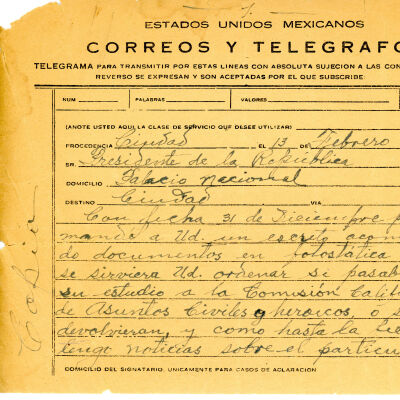 ESTADOS UNIDOS MEXICANOS
CORREOS Y TELEGRAFO
TELEGRAMA PARA TRANSMITIR POR ESTAS LINEAS CON ABSOLUTA SUJECION A LAS CON
REVERSO SE EXPRESAN Y SON ACEPTADAS POR EL QUE SUBSCRIBE:
NUM PALABRAS VALORES
(ANOTE USTED AQUI LA CLASE DE SERVICIO QUE DESEE UTILIZAR)
PROCEDENCIA Ciudad EL 13 DE Febrero
SR. Presidente de la República
DOMICILIO Palacio Nacional
DESTINO Ciudad VIA
Con fecha 31 de Diciembre p
mandé a Ud. un escrito acom
do documentos en fotostática
se sirviera Ud. ordenar si pasab
su estudio a la Comisión Calif
de Asuntos Civiles y heroicos, o s
devolvieran, y como hasta la fe
tengo noticias sobre el particu
DOMICILIO DEL SIGNATARIO, UNICAMENTE PARA CASOS DE ACLARACION
Copia